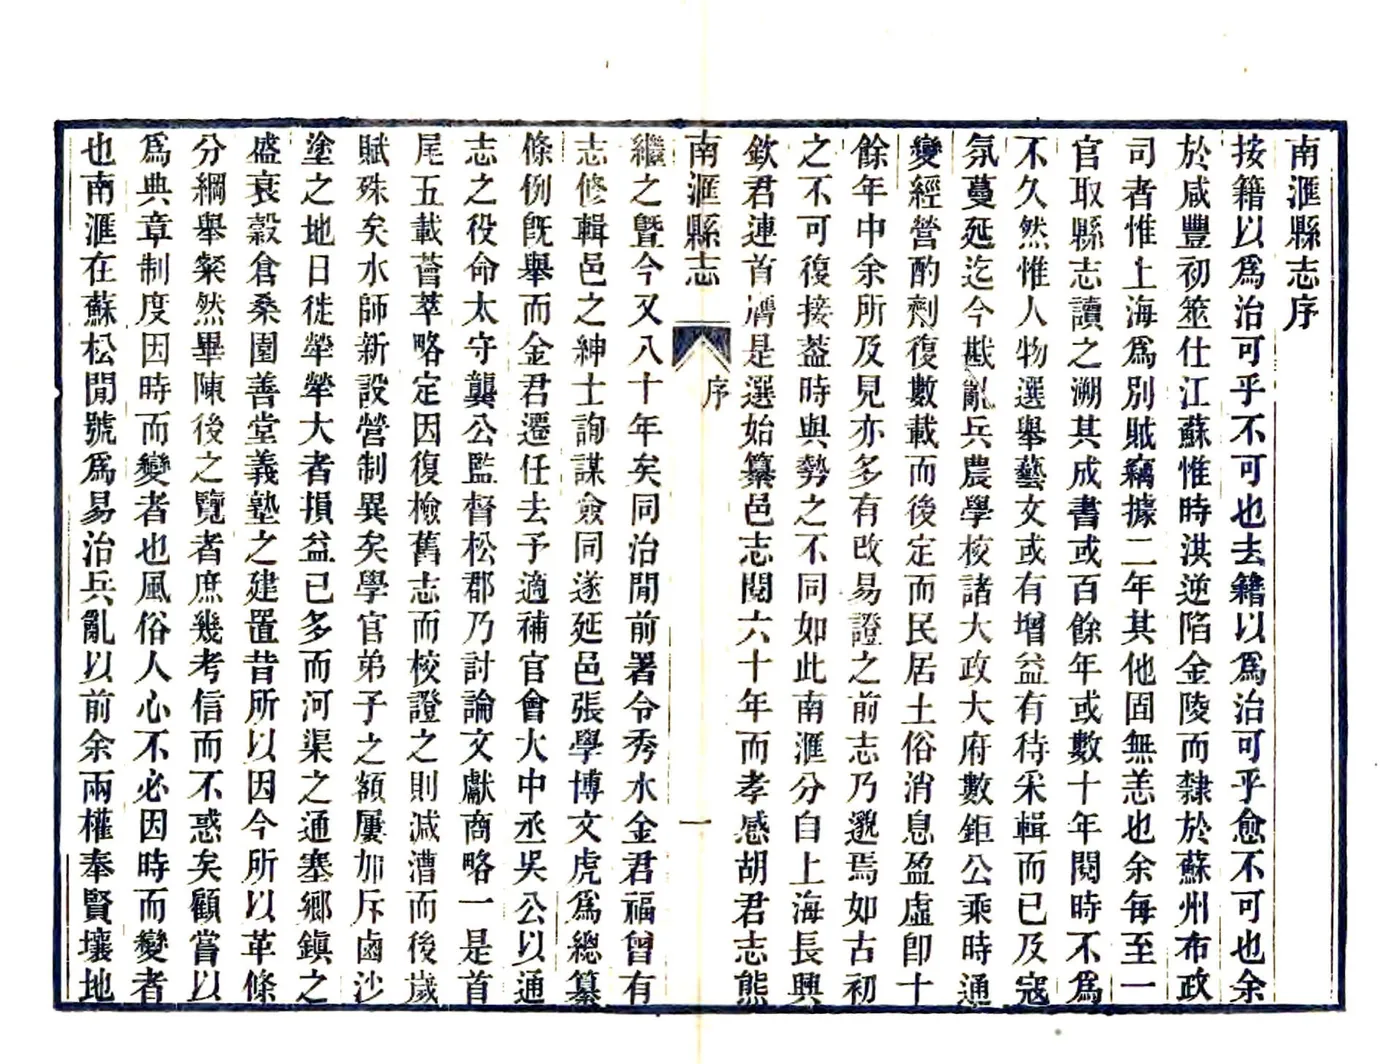 南滙縣志序
按籍以爲治可乎不可也去籍以爲治可乎愈不可也余
於咸豐初筮仕江蘇惟時淇逆陷金陵而隸於蘇州布政
司者惟上海爲別賊竊據二年其他固無恙也余每至一
官取縣志讀之溯其成書或百餘年或數十年閱時不爲
不久然惟人物選舉藝文或有增益有待采輯而已及寇
氛蔓延迄今戡亂兵農學校諸大政大府數鉅公乘時通
變經營酌劑復數載而後定而民居土俗消息盈虛卽十
餘年中余所及見亦多有改易證之前志乃邈焉如古初
之不可復接葢時與勢之不同如此南滙分自上海長興
欽君連首膺是選始纂邑志閱六十年而孝感胡君志熊
南滙縣志
序
一
繼之曁今又八十年矣同治閒前署令秀水金君福曾有
志修輯邑之紳士詢謀僉同遂延邑張學博文虎爲總纂
條例旣舉而金君遷任去予適補官會大中丞吳公以通
志之役命太守龔公監督松郡乃討論文獻商略一是首
尾五載薈萃略定因復檢舊志而校證之則減漕而後歲
賦殊矣水師新設營制異矣學官弟子之額屢加斥鹵沙
塗之地日徙犖犖大者損益已多而河渠之通塞鄉鎭之
盛衰穀倉桑園善堂義塾之建置昔所以因今所以革條
分綱舉粲然畢陳後之覽者庶幾考信而不惑矣顧嘗以
爲典章制度因時而變者也風俗人心不必因時而變者
也南滙在蘇松閒號爲易治兵亂以前余兩權奉賢壤地